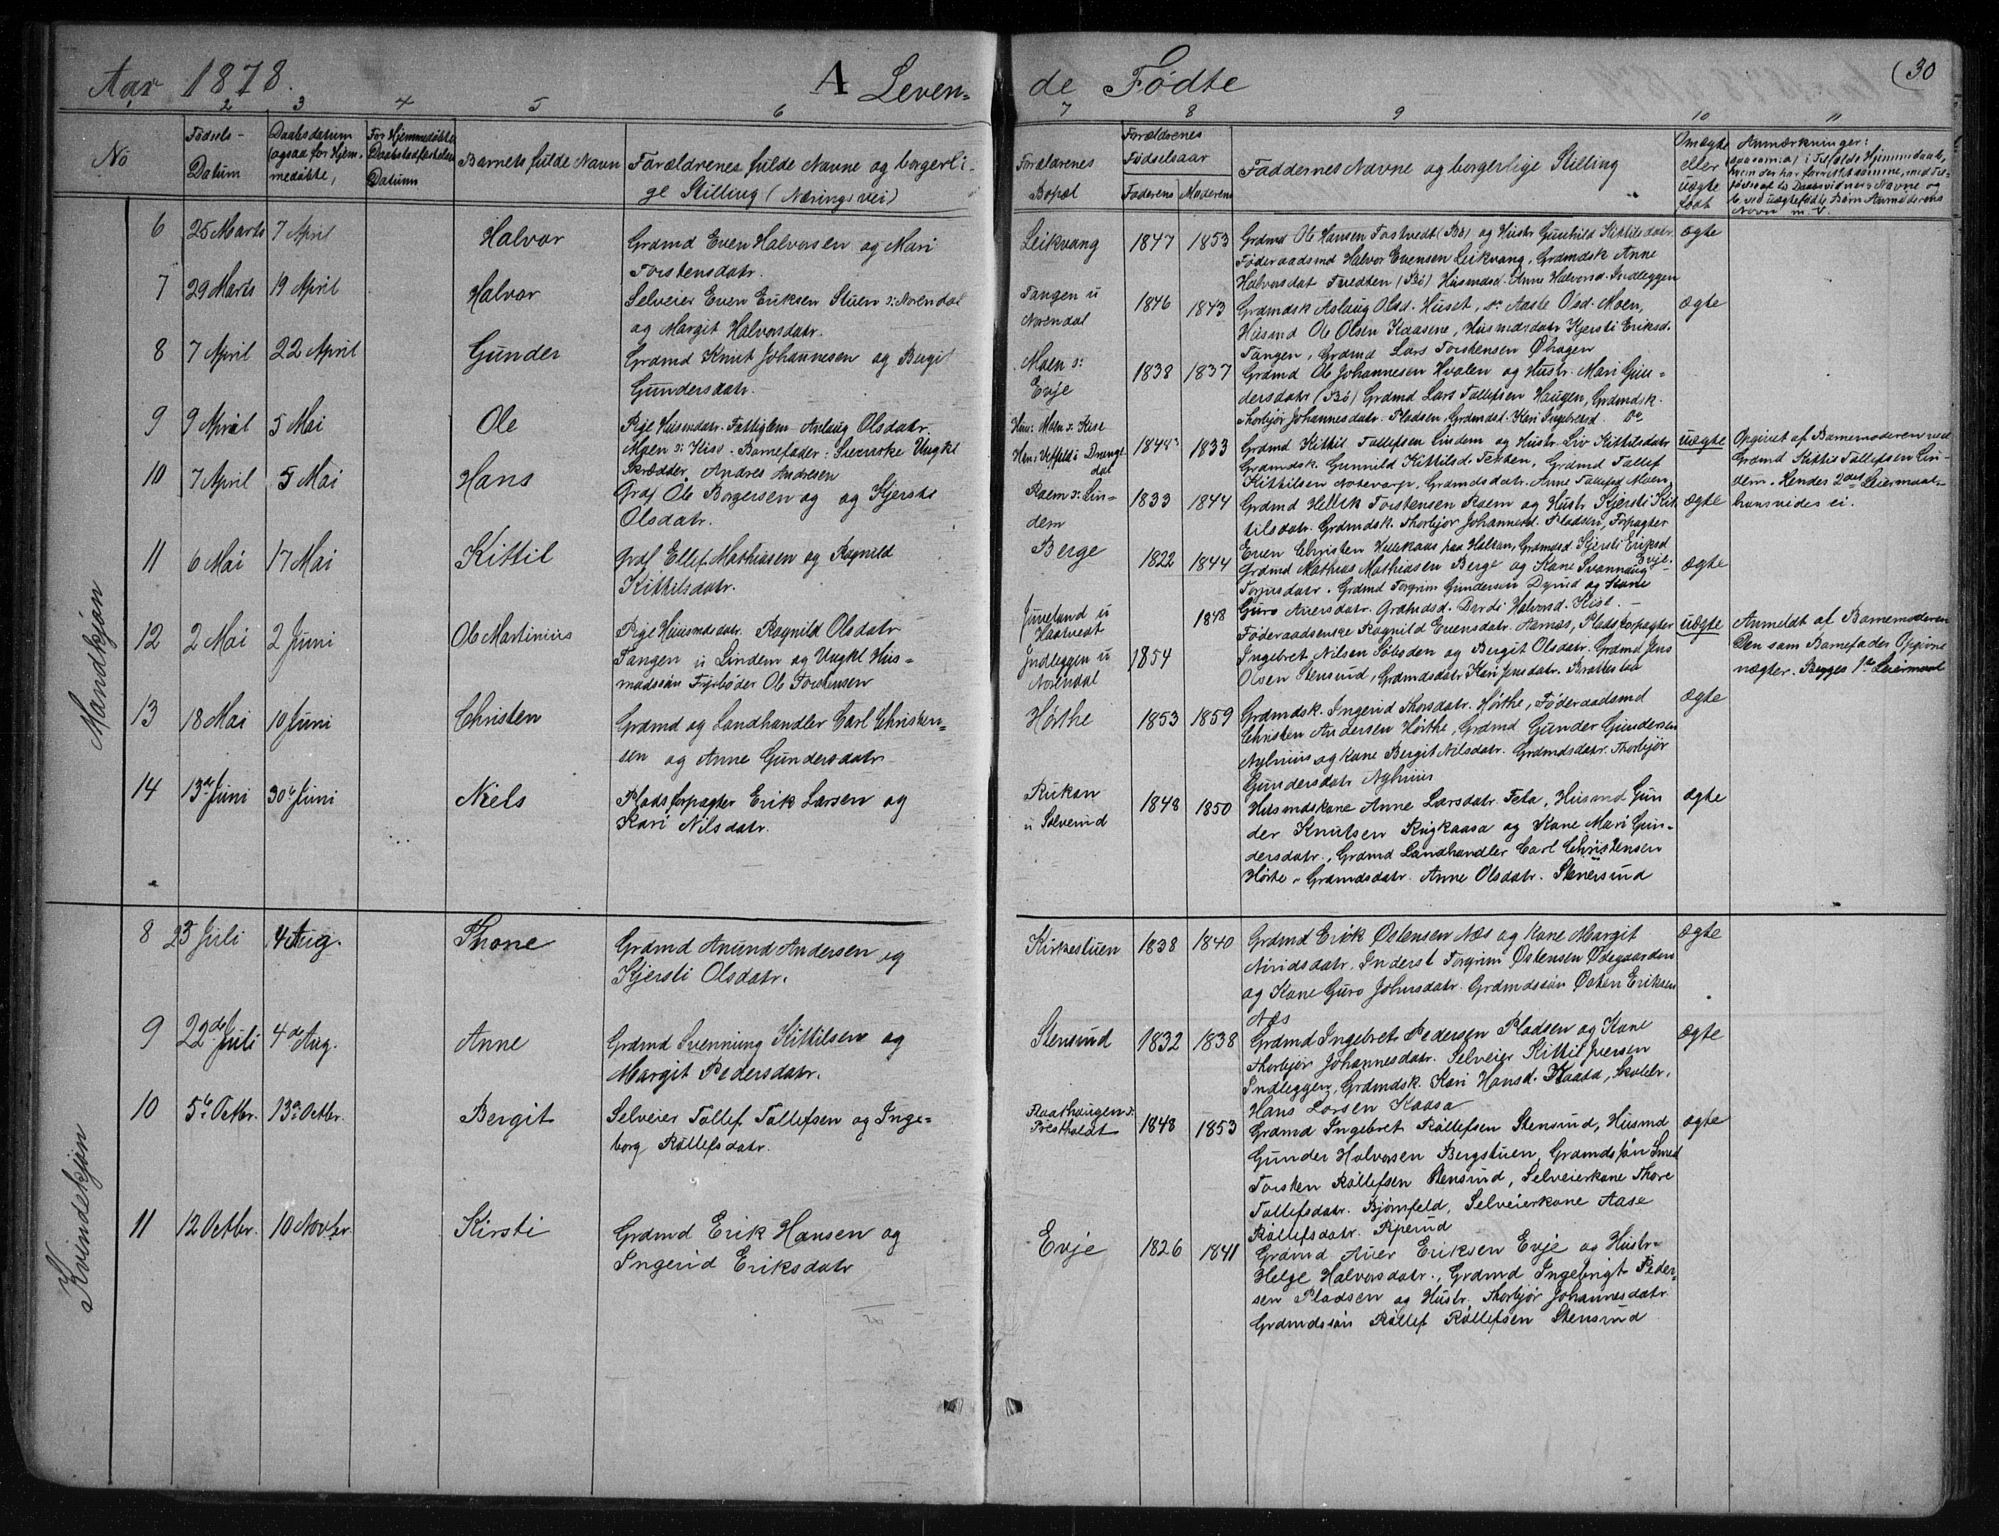 Aar 1878.
A Leven-
de Fødte
(30
2 3 4 5 6 7 8 9 10 11
No
Fødsels-
Datum
Daabsdatum
(ogsaa for Hjem-
medøbte,
For Hjemmedøbte
Datum
Barnets fulde Navn
Forældrenes fulde Navne og borgerli-
ge Stilling (Næringsvei)
Forældrenes
Bopæl
Forældrenes
Fødselsaar
Faderens Moderens
Faddernes Navne og borgerlige Stilling
Ægte
eller
uægte
født
Anmærkninger:
Mandkjøn
6 25 Marts 7 April Halvor
Grdmd Even Halvorsen og Mari
Torstensdatr.
Leikvang
1847 1853
Grdmd Ole Hansen Torstvedt (Bø) og Hustr Gunhild Kittilsdatr.
Føderaadsmd Halvor Evensen Leikvang, Grdmdsk Anne
Halvorsdat (Bø) Husmdsd. Anne Halvorsd. Indleggen
ægte
7 29 Marts 19 April Halvor
Selveier Even Eriksen Stuen s: Norendal
og Margit Halvorsdatr.
Tangen u
Norendal
1846 1843
Grdmdsk Aslaug Olsd. Huset, do Aaste Olsd. Moen,
Husmd Ole Olsen Kaasene, Husmdsdatr Kjersti Eriksd.
Tangen, Grdmd Lars Torstensen Øhagen
ægte
8 7 April 22 April Gunder
Grdmd Knut Johannesen og Bergit
Gundersdatr.
Moen s:
Evje
1838 1837
Grdmd Ole Johannesen Hvalen og Hustr. Mari Gun-
dersdatr (Bø) Grdmd Lars Tollefsen Haugen, Grdmdsk.
Thorbjør Johannesdatr. Pladsen, Grdmdsd. Kari Ingebretsd. Do
9 9 April 5 Mai Ole
Pige Husmdatr. Fattiglem Aslaug Olsdatr.
Moen s: Kise. Barnefader: Ungkl
Skrædder, Andres Andresen
Hun: Moen s: Kise
1848 1833
Grdmd Kittil Tollefsen Lindem og Hustr. Liv Kittilsdatr
Grdmdsk. Gunnild Kittilsd. Tekken, Grdmd Tollef
Kittilsen Notevarp, Grdmdsdatr. Anne Tollefsd Moen
uægte
Opgivet af Barnemoderen ved
Grdmd Kittil Tollefsen Lin-
dem. Hendes 2det Leiermaal
hans vides ei.
10 7 April 5 Mai Hans
Grdf Ole Borgersen og og Kjersti
Olsdatr.
Roem s: Lin-
dem
1833 1844
Grdmd Hellek Torstensen Roem og Hustr Kjersti Kit-
tilsdatr. Grdmdsk. Thorbjør Johannesd. Pladsen, Forpagter
Even Christen Hellekaas paa Holtan, Grdmdsd Kjersti Eriksd
Evje.
ægte
11 6 Mai 17 Mai Kittil
Grdf Ellef Mathiasen og Ragnild
Kittilsdatr.
Berge
1822 1844
Grdmd Mathias Mathiasen Berge og Kone Svannaug
Torjusdatr. Grdmd Torgrim Gundersen Dyrud og Kone
Guro Auersdatr. Grdmdsd. Dordi Halvorsd. Kise.
ægte
12 2 Mai 2 Juni Ole Martinius
Pige Husmdsdatr. Ragnild Olsdatr
Tangen u Lindem og Ungkl Hus-
mdssøn Ole Torstensen
Juveland u
Haatvedt
Indleggen u
Norendal
1854 1848
Føderaadsenke Ragnild Evensdatr. Aarnæs, Pladsforpagter
Ingebret Nilsen Løbsden og Bergit Olsdatr. Grdmd Jens
Olsen Stensrud, Grdmdsdatr. Kari Jensdatr. Brattestaa
uægte
Anmeldt af Barnemoderen
Den som Barnefader Opgivne
nægter. Begges 1ste Leiermaal
13 18 Mai 10 Juni Christen
Grdmd og Landhandler Carl Christen-
sen og Anne Gundersdatr
Hørthe
1853 1859
Grdmdsk. Ingerid Thorsdatr. Hørthe, Føderaadsmd
Christen Andersen Hørthe, Grdmd Gunder Gundersen
Nyhuus og Kone Bergit Nilsdatr. Grdmdsdatr. Thorbjør
Gundersdatr Nyhuus
ægte
14 13de Juni 30te Juni Niels
Pladsforpagter Erik Larsen og
Kari Nilsdatr.
Rukan
u Solverud
1848 1850
Husmdskone Anne Larsdatr. Teta, Husmd Gun
der Knutsen Rugkaasa og Kone Mari Gun-
dersdatr., Grdmd Landhandler Carl Christensen
Hørte. Grdmdsdatr. Anne Olsdatr. Stenersrud
ægte
Kvindekjøn
8 23 Juli 4 Aug. Thone
Grdmd Anund Andersen og
Kjersti Olsdatr.
Kirkestuen
1838 1840
Grdmd Erik Østensen Næs og Kone Margit
Niridsdatr. Inderst Torgrim Østensen Ødegaarden
og Kone Guro Johnsdatr. Grdmdssøn Østen Eriksen
Næs
ægte
9 22de Juli 4de Aug. Anne
Grdmd Svennung Kittilsen og
Margit Pedersdatr.
Stensrud
1832 1838
Grdmd Ingebret Pedersen Pladsen og Kone
Thorbjør Johannesdatr. Selveier Kittil Iversen
Indleggen, Grdmdsk. Kari Hansd. Kaasa, Skolelr.
Hans Larsen Kaasa
ægte
10 5te Octbr. 13de Octbr. Bergit
Selveier Tollef Tollefsen og Inge-
borg Røllefsdatr.
Raathaugen s:
Prestholdt
1848 1853
Grdmd Ingebret Røllefsen Stensrud, Husmd
Gunder Halvorsen Bergstuen, Grdmdsøn Smed
Torsten Røllefsen Stensrud, Selveierkone Thore
Tollefsdatr. Bjørnfeld, Selveierkone Aase
Røllefsdatr. Riperud
ægte
11 12 Octbr. 10 Novbr. Kirsti
Grdmd Erik Hansen og
Ingerid Eriksdatr
Evje
1826 1841
Grdmd Auer Eriksen Evje og Hustr-
Helge Halvorsdatr., Grdmd Ingebrigt Peder-
sen Pladsen og Hustr. Thorbjør Johannesdatr.
Grdmdssøn Røllef Røllefsen Stensrud